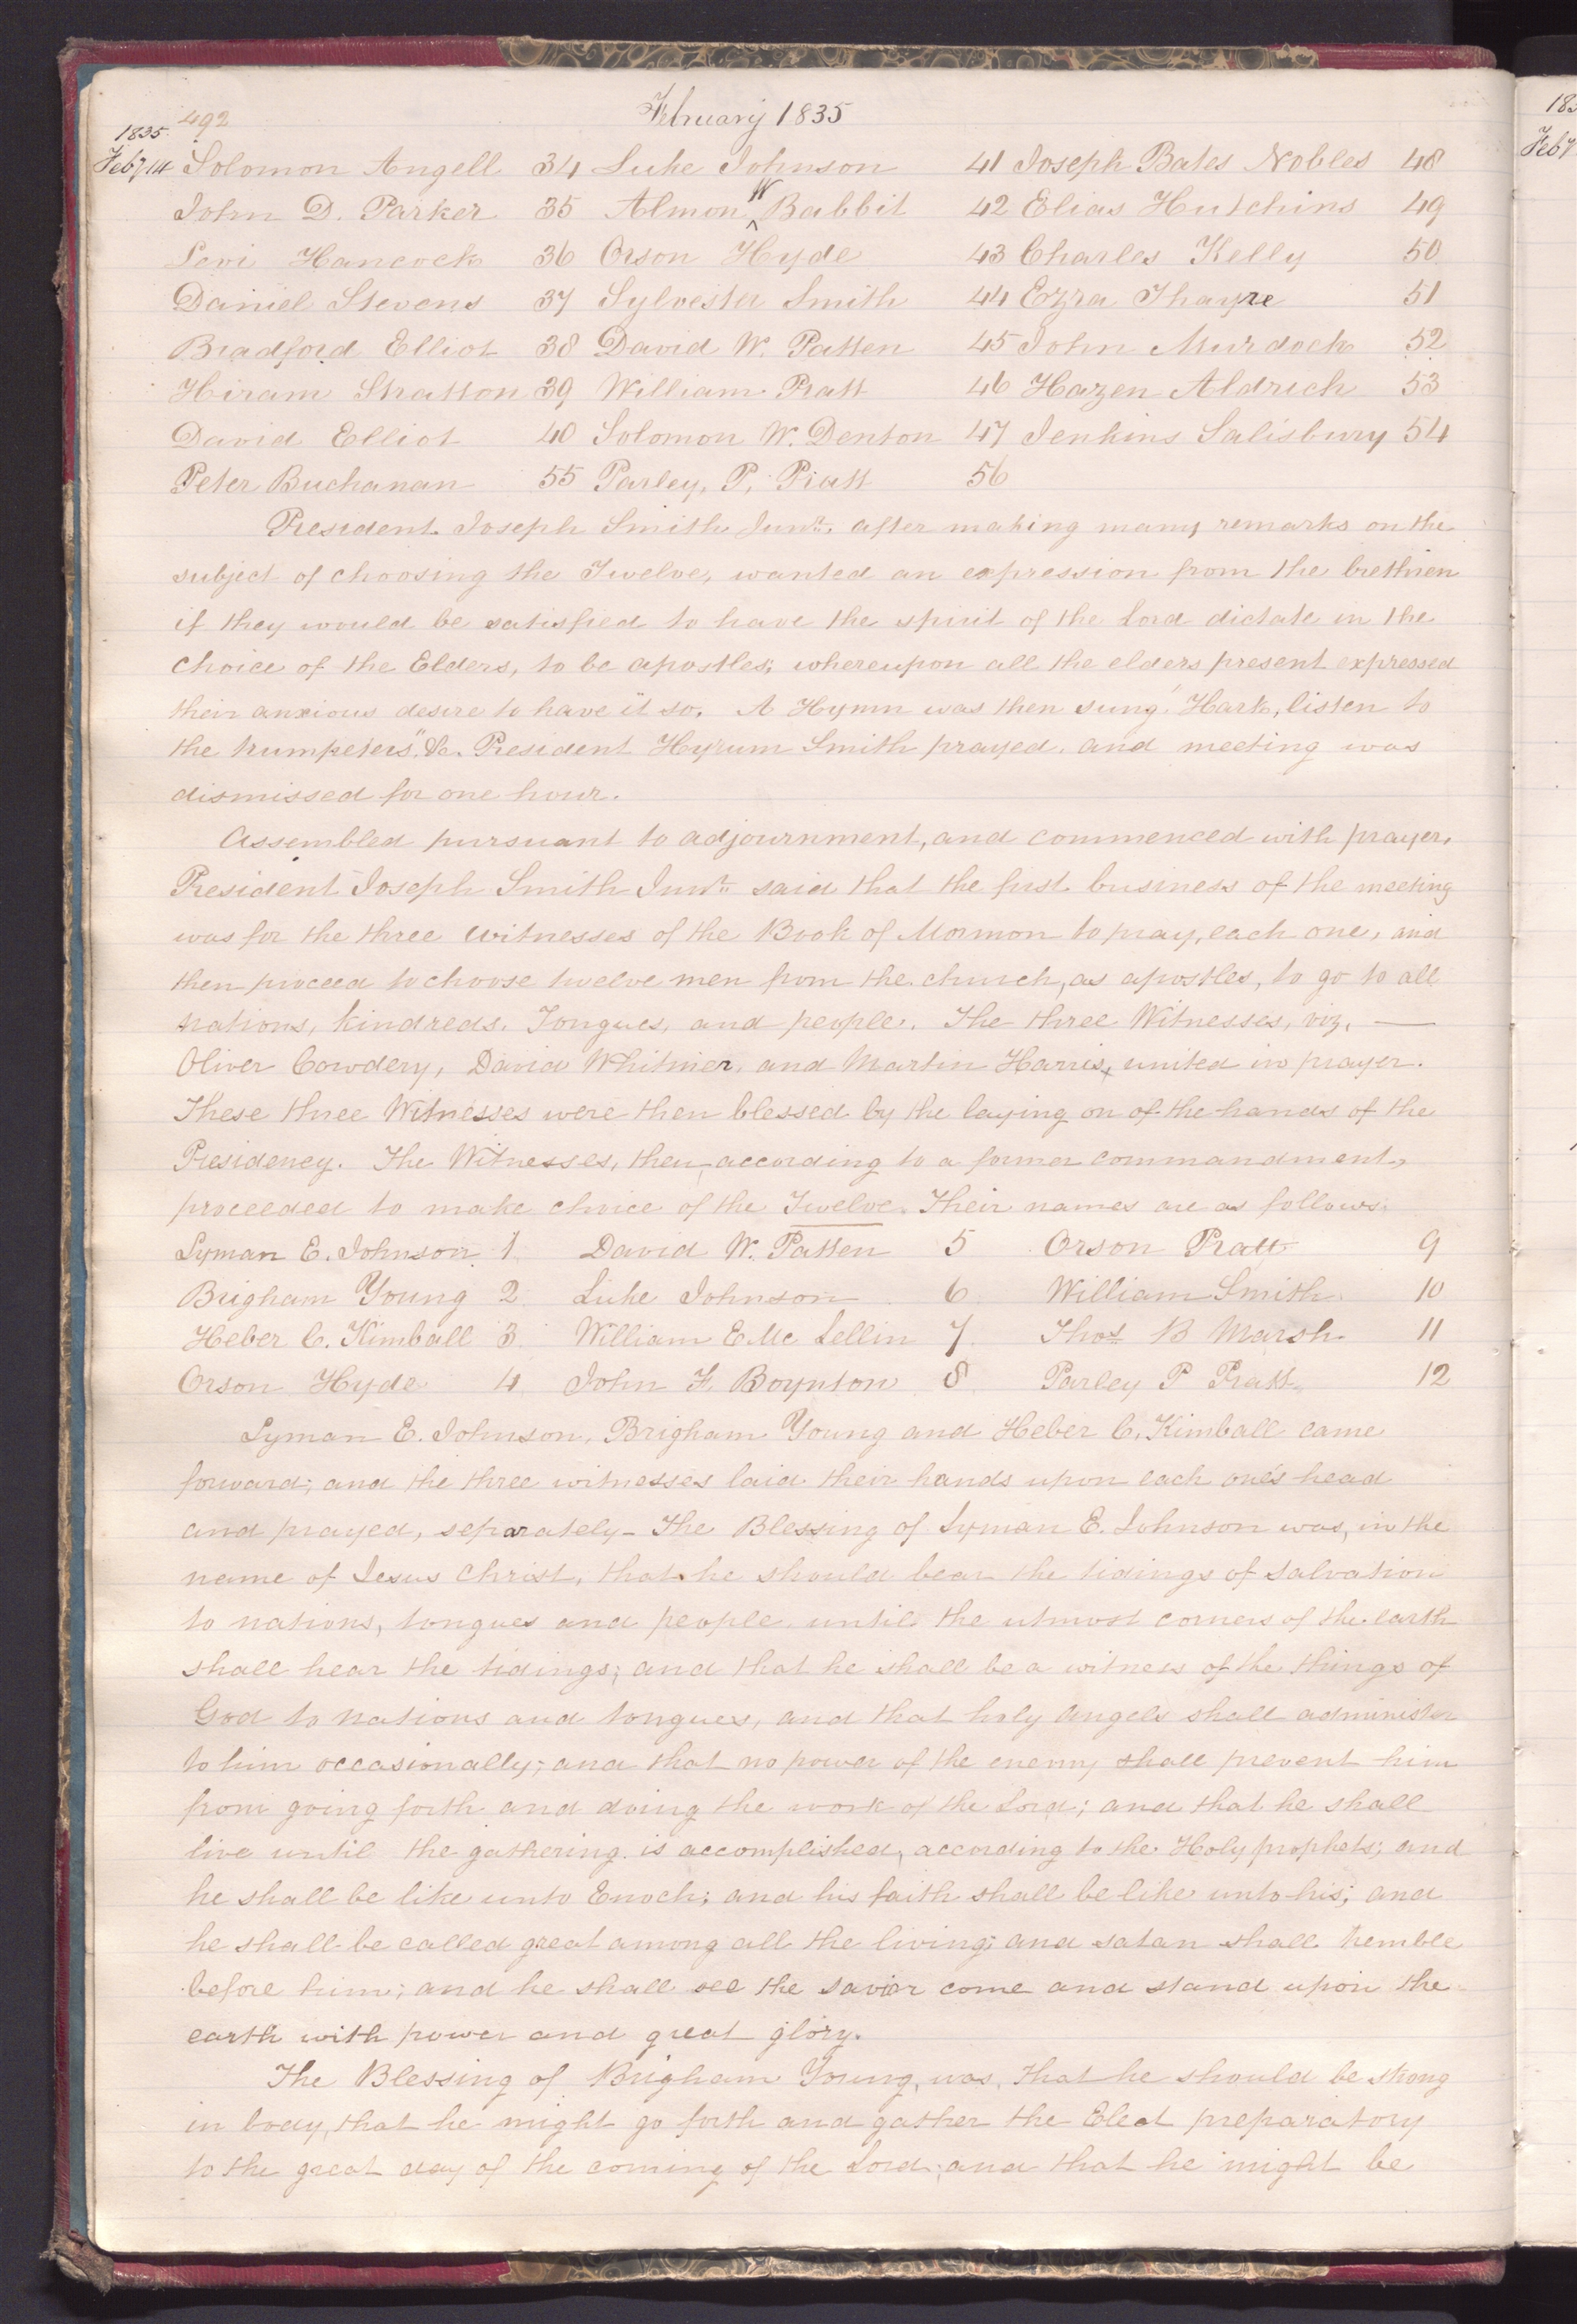 492 February 1835
1835
Feby 14 Solomon Angell 34 Luke Johnson 41 Joseph Bates Nobles 48
John D. Parker 35 Almon W Babbit 42 Elias Hutchins 49
Levi Hancock 36 Orson Hyde 43 Charles Kelly 50
Daniel Stevens 37 Sylvester Smith 44 Ezra Thayre 51
Bradford Elliot 38 David W. Patten 45 John Murdock 52
Hiram Stratton 39 William Pratt 46 Hazen Aldrich 53
David Elliot 40 Solomon W. Denton 47 Jenkins Salisbury 54
Peter Buchanan 55 Parley, P. Pratt 56
President Joseph Smith Junr. after making many remarks on the
subject of choosing the Twelve, wanted an expression from the brethren
if they would be satisfied to have the spirit of the Lord dictate in the
choice of the Elders, to be apostles; whereupon all the elders present expressed
their anxious desire to have it so. A Hymn was then sung "Hark, listen to
the trumpeters" &c. President Hyrum Smith prayed, and meeting was
dismissed for one hour.
Assembled pursuant to adjournment, and commenced with prayer.
President Joseph Smith Junr. said that the first business of the meeting
was for the three witnesses of the Book of Mormon to pray, each one, and
then proceed to choose twelve men from the church, as apostles, to go to all
nations, kindreds, Tongues, and people. The three Witnesses, viz, —
Oliver Cowdery, David Whitmer, and Martin Harris, united in prayer.
These three Witnesses were then blessed by the laying on of the hands of the
Presidency. The Witnesses, then, according to a former commandment,
proceeded to make choice of the Twelve. Their names are as follows:
Lyman E. Johnson 1. David W. Patten 5 Orson Pratt 9
Brigham Young 2. Luke Johnson 6. William Smith 10
Heber C. Kimball 3. William E. Mc Lellin 7. Thos B Marsh 11
Orson Hyde 4. John F. Boynton 8 Parley P Pratt 12
Lyman E. Johnson, Brigham Young and Heber C. Kimball came
forward; and the three witnesses laid their hands upon each one's head
and prayed, separately- The Blessing of Lyman E. Johnson was, in the
name of Jesus Christ, that he should bear the tidings of salvation
to nations, tongues and people, until the utmost corners of the earth
shall hear the tidings; and that he shall be a witness of the things of
God to nations and tongues, and that holy Angels shall administer
to him occasionally; and that no power of the enemy shall prevent him
from going forth and doing the work of the Lord; and that he shall
live until the gathering is accomplished, according to the Holy prophets; and
he shall be like unto Enoch; and his faith shall be like unto his; and
he shall be called great among all the living; and satan shall tremble
before him; and he shall see the savior come and stand upon the
earth with power and great glory.
The Blessing of Brigham Young, was, that he should be strong
in body, that he might go forth and gather the Elect preparatory
to the great day of the coming of the Lord; and that he might be